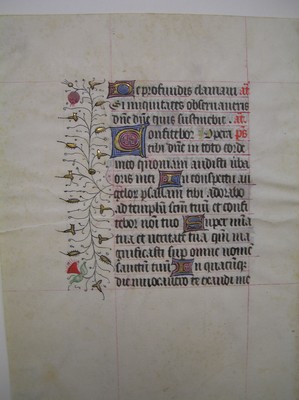 De profundis clamaui añ
Si iniquitates obseruaueris
dñe dñe quis sustinebit. añ.
Confitebor Opera p̄s
tibi dñe in toto corde
meo quoniam audisti ūba
oris mei In conspectu an
gelor psallam tibi Adorabo
ad templū scm̄ tuū et confi
tebor noī tuo Super mīa
tua et ueritate tua qm̄ ma
gnificasti sup omne nomē
sanctū tuū In quacūq
die inuocauero te exaudi me